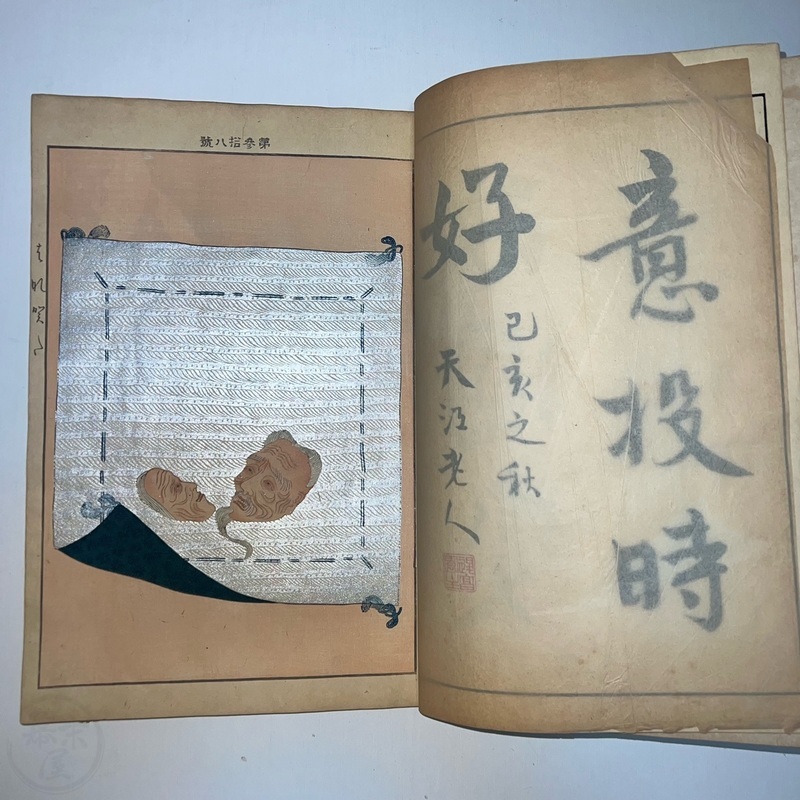 意投時
好
己亥之秋
天江老人
第參拾八號